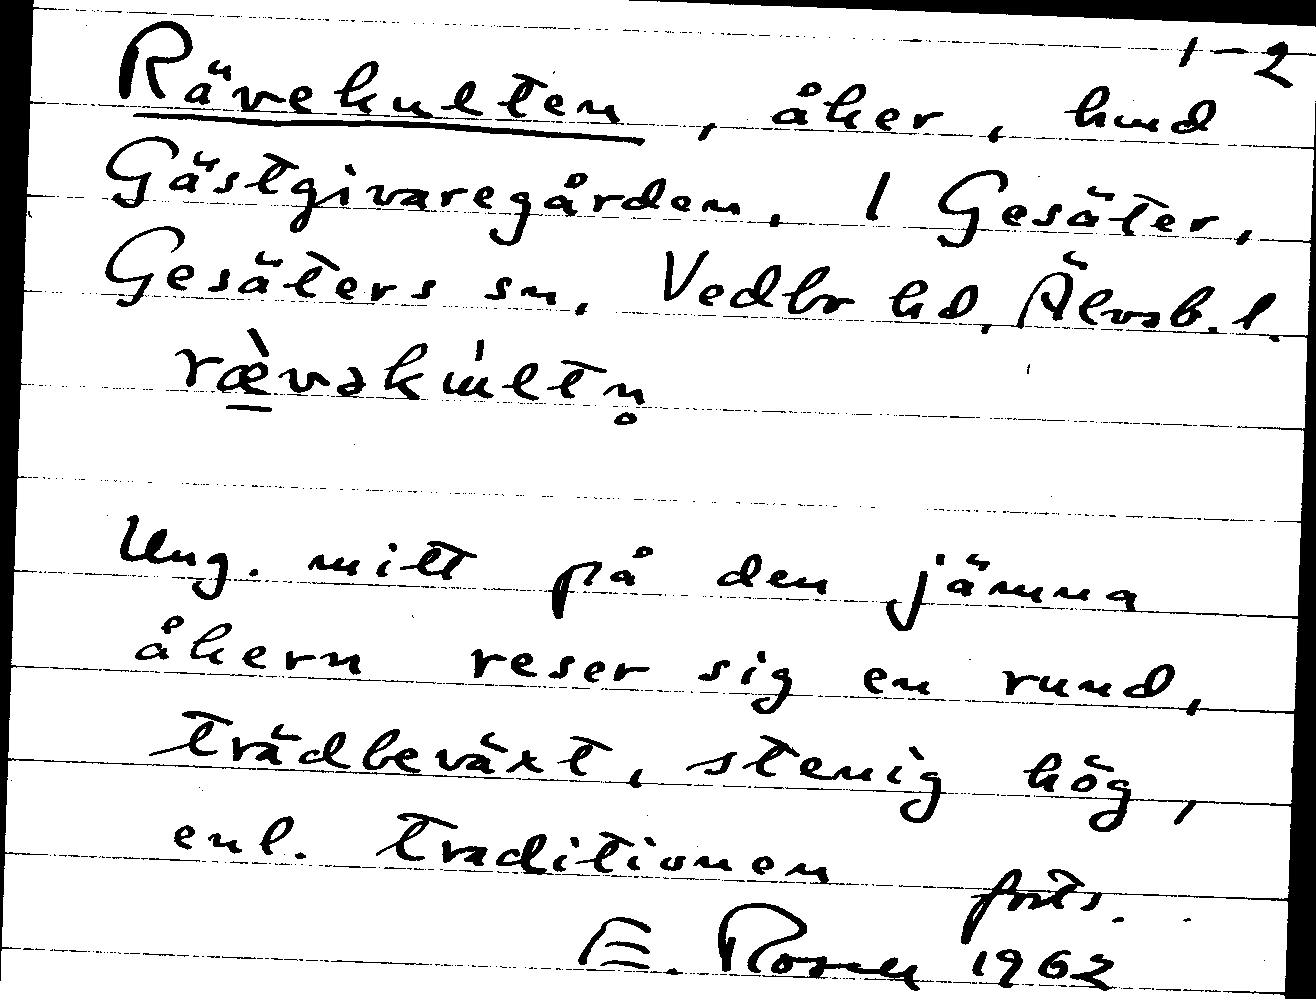 1-2
Rävekulten, åker, hmd
Gästgivaregården, 1 Gesäter,
Gesäters sn, Vedbo hd, Älvsb. l.
Ung. mitt på den jämna
åkern reser sig en rund,
trädbeväxt, stenig hög,
enl. traditionen
forts.
E. Rosell 1962